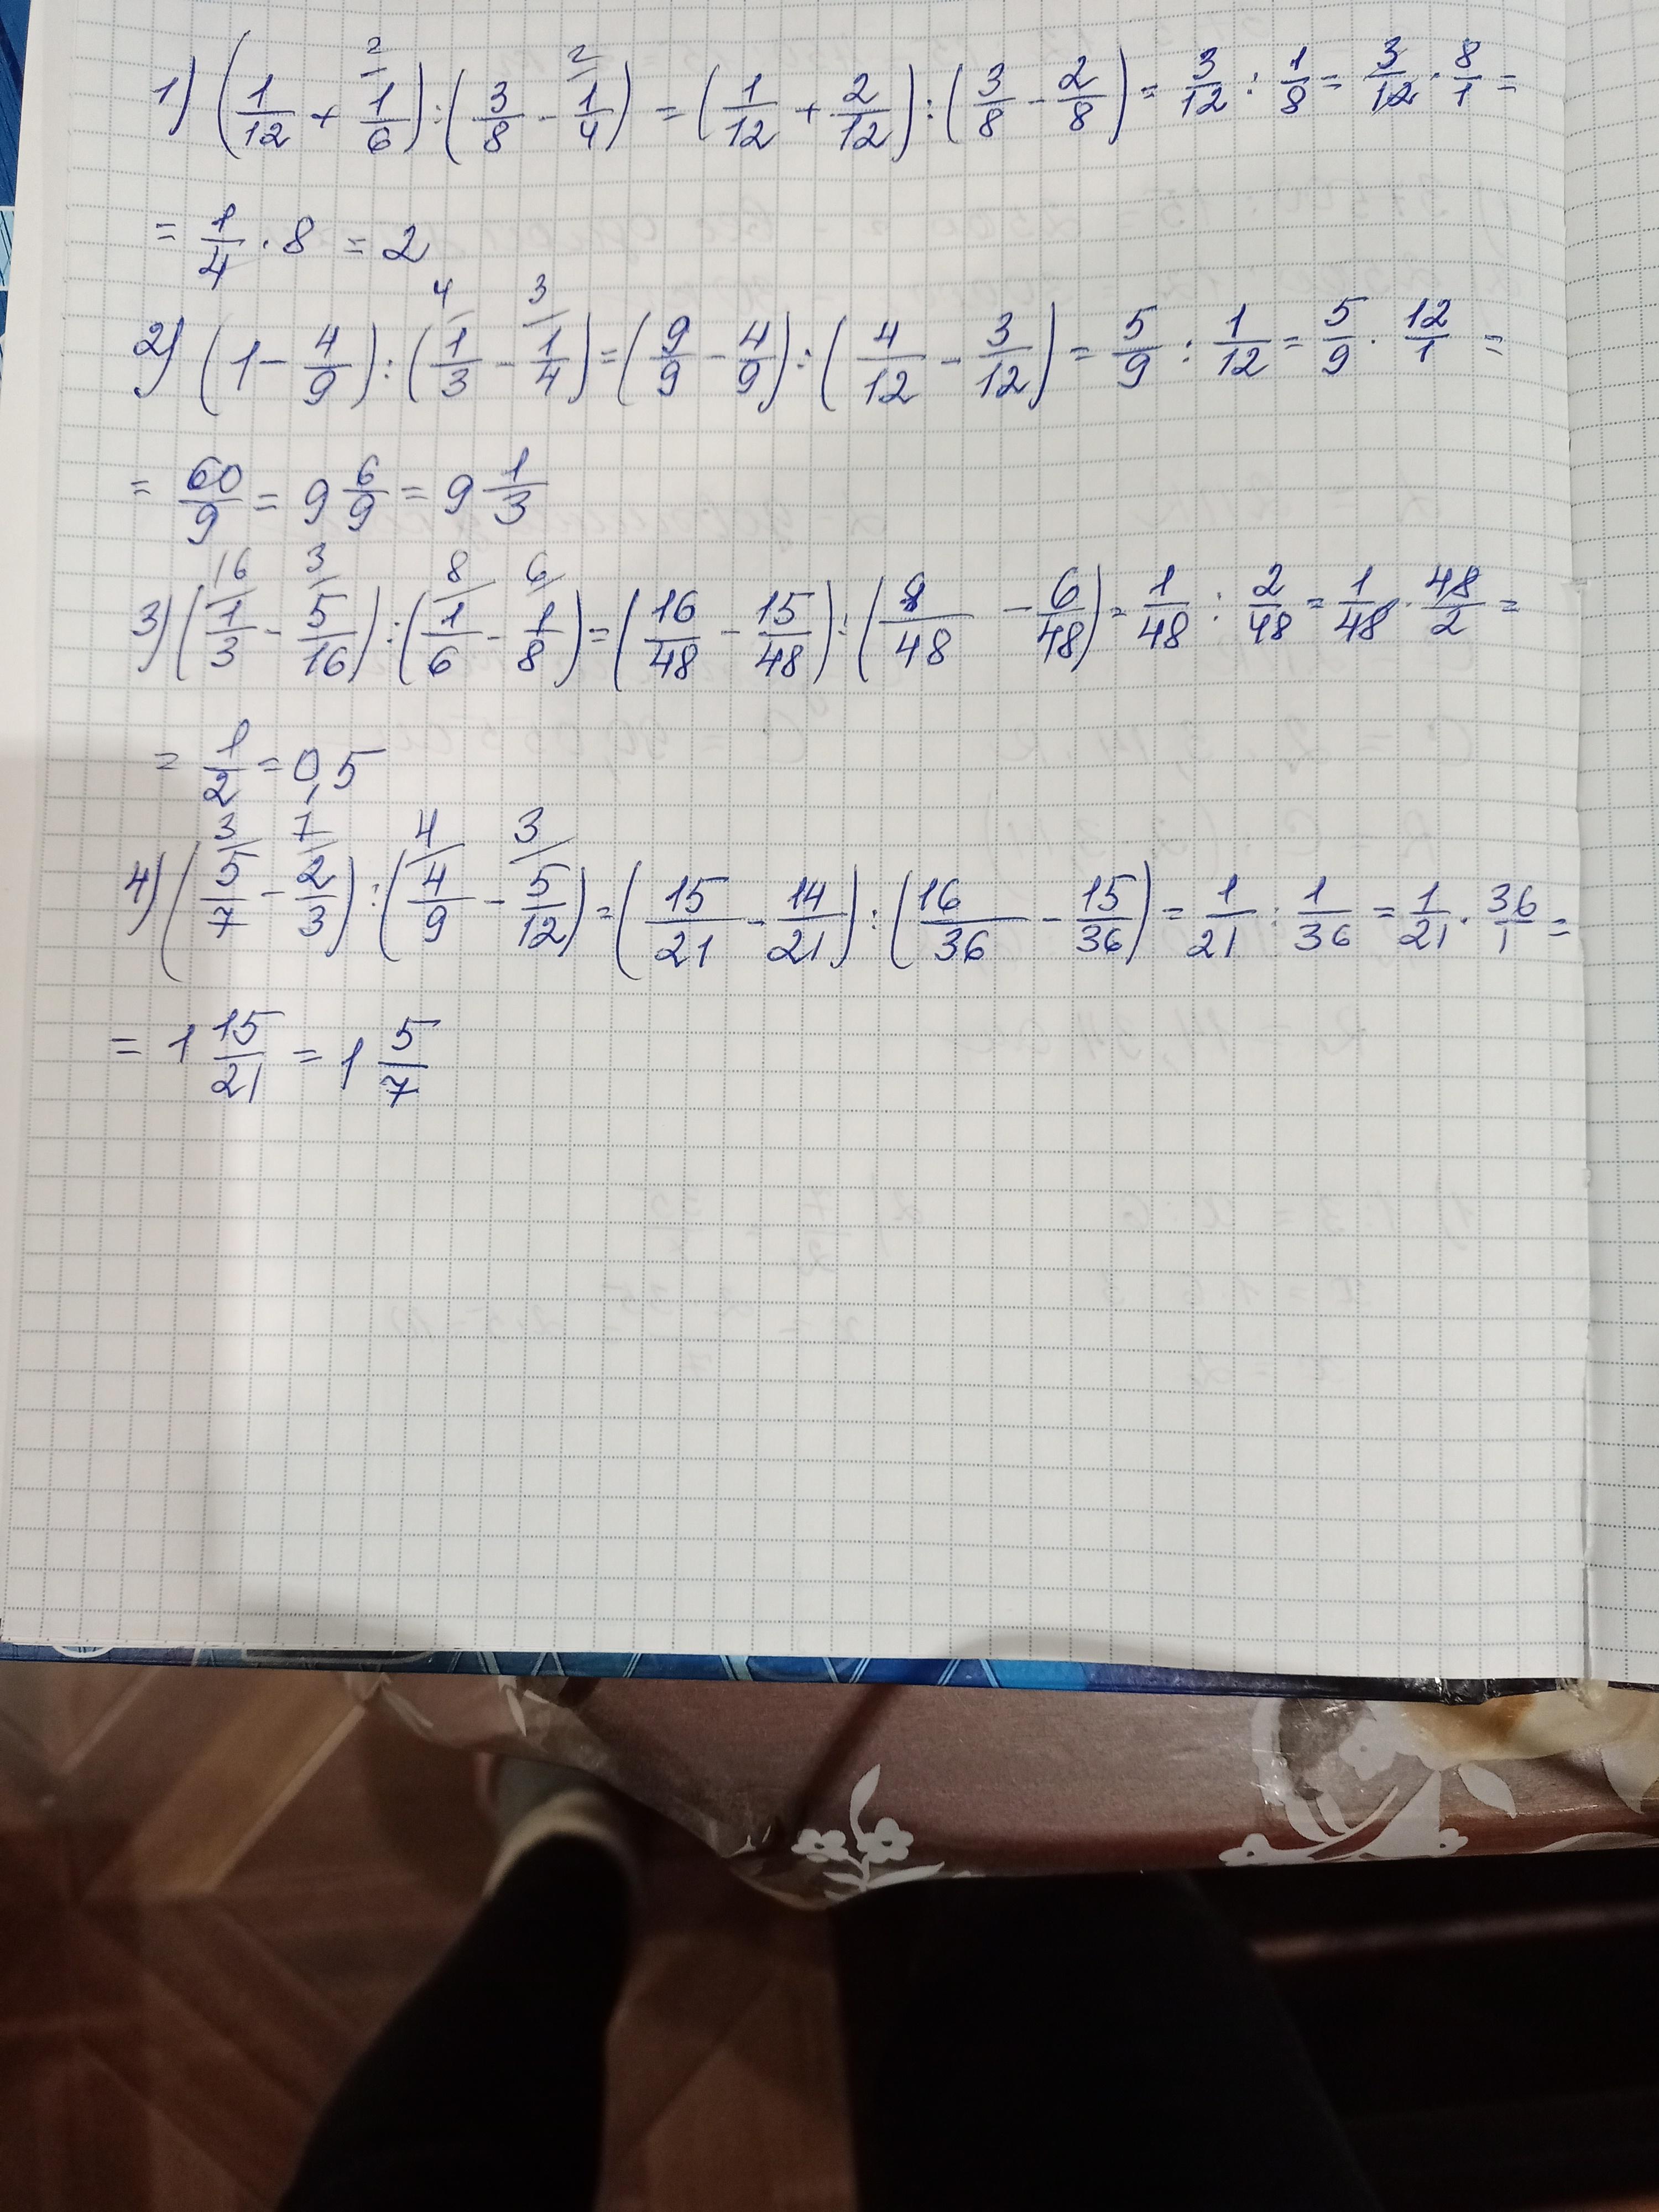 1) (1/12 + 1/6 ²/) : (3/8 - 1/4 ²/) = (1/12 + 2/12) : (3/8 - 2/8) = 3/12 : 1/8 = 3/12 · 8/1 =
= 1/4 · 8 = 2
2) (1 - 4/9) : (1/3 ⁴/ - 1/4 ³/) = (9/9 - 4/9) : (4/12 - 3/12) = 5/9 : 1/12 = 5/9 · 12/1 =
= 60/9 = 9 6/9 = 9 1/3
3) (1/3 ¹⁶/ - 5/16 ³/) : (1/6 ⁸/ - 1/8 ⁶/) = (16/48 - 15/48) : (8/48 - 6/48) = 1/48 : 2/48 = 1/48 · 48/2 =
= 1/2 = 0,5
4) (5/7 ³/ - 2/3 ⁷/) : (4/9 ⁴/ - 5/12 ³/) = (15/21 - 14/21) : (16/36 - 15/36) = 1/21 : 1/36 = 1/21 · 36/1 =
= 1 15/21 = 1 5/7